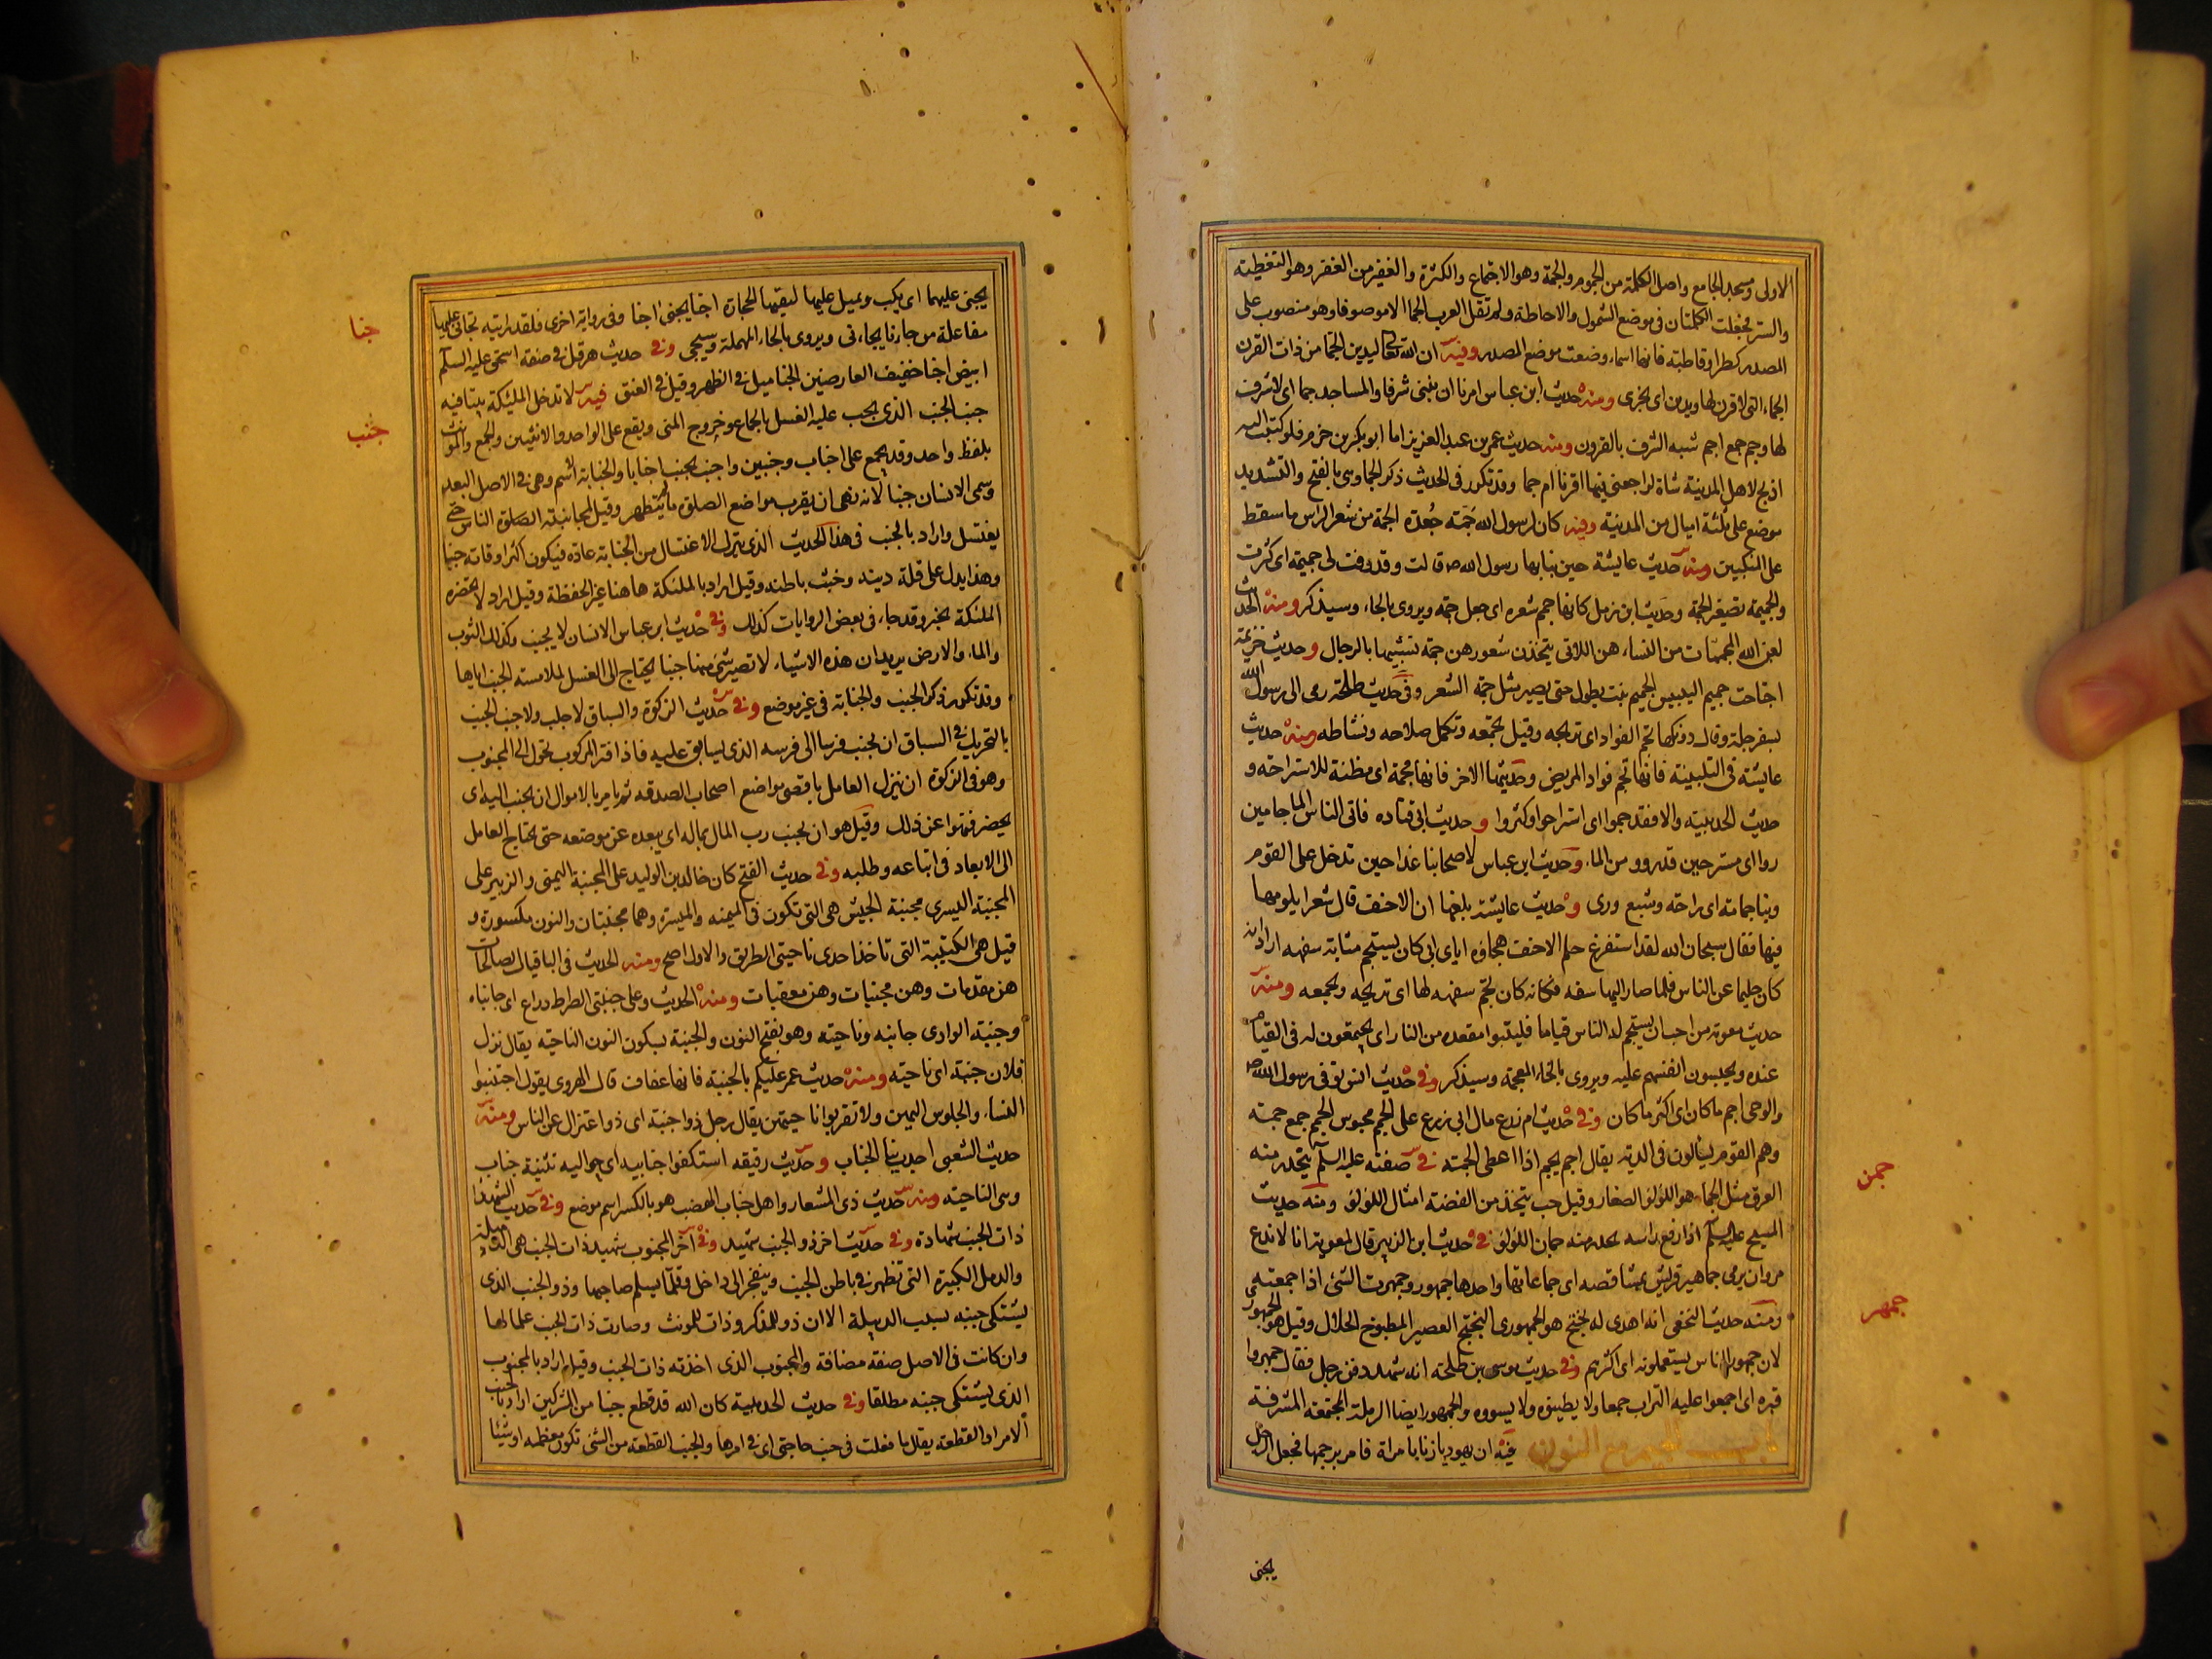 الاولى ومسجد الجامع واصل الكلمة من الجموم والجمة وهو الاجتماع والكثرة والغفير من الغفر وهو التغطية
والستر فجعلت الكلمتان فى موضع الشمول والاحاطة ولم تقل العرب الجما الا موصوفا وهو منصوب على
المصدر كطرا وقاطبة فانها اسماء وضعت موضع المصدر وفيه ان الله تعالى ليدين الجما من ذات القرن
الجماء التى لا قرن لها ويدين اى يجزى ومنه حديث ابن عباس امرنا ان نبنى شرفا والمساجد جما اى لا شرف
لها وجم جمع اجم شبه الشرف بالقرون ومنه حديث عمر بن عبد العزيز اما ابو بكر بن حزم فلو كتبت اليه
اذبح لاهل المدينة شاة لراجعنى فيها اقرنا ام جما وقد تكرر فى الحديث ذكر الجما وهى بالفتح والتشديد
موضع على ثلثة اميال من المدينة وفيه كان لرسول الله جمة جعدة الجمة من شعر الراس ما سقط
على المنكبين ومنه حديث عايشة حين بنا بها رسول الله ص قالت وقد وفت لى جميمة اى كثرت
والجميمة تصغير الجمة وحديث ابن زمل كانما جمم شعره اى جعل جمة ويروى بالحاء وسيذكر ومنه الحديث
لعن الله المجممات من النساء هن اللاتى يتخذن شعورهن جمة تشبيها بالرجال وحديث خزيمة
اجتاحت جميم اليبيس الجميم نبت يطول حتى يصير مثل جمة الشعر وفى حديث طلحة رمى الى رسول الله
بسفرجلة وقال دونكها تجم الفواد اى تريحه وقيل تجمعه وتكمل صلاحه ونشاطه ومنه حديث
عايشة فى التلبينة فانها تجم فواد المريض وحديثها الاخر فانها مجمة اى مظنة للاستراحة و
حديث الحديبية والا فقد جموا اى استراحوا وكثروا وحديث ابى قتاده فاتى الناس الما جامين
روا اى مستريحين قد رووا من الماء وحديث ابن عباس لاصحابنا غدا حين تدخل على القوم
وبنا جمامة اى راحة وشبع ورى وحديث عايشة بلغها ان الاحنف قال شعرا يلومها
فيها فقال سبحان الله لقد استفرغ حلم الاحنف هجاؤه اياى ابى كان يستجم مثابة سفهه ارادت انه
كان حليما عن الناس فلما صار اليها سفه فكانه كان تجم سفهه لها اى تريحه وتجمعه ومنه
حديث معوية من احب ان يستجم له الناس قياما فليتبوا مقعده من النار اى يجتمعون له فى القيام
عنده ويحبسون انفسهم عليه ويروى بالخاء المعجمة وسيذكر وفى حديث انس توفى رسول الله ص
والوحى اجم ما كان اى اكثر ما كان وفى حديث ام زرع مال ابى زرع على الجمم محبوس الجمم جمع جمة
وهم القوم يسالون فى الدية يقال اجم يجم اذا اعطى الجمة فى صفته عليه السلم يتحدر منه
العرق مثل الجمان هو اللؤلؤ الصغار وقيل حب يتخذ من الفضة امثال اللؤلؤ ومنه حديث
المسيح عليه السلم اذا رفع راسه تحدر منه جمان اللؤلؤ فى حديث ابن الزبير قال لمعوية انا لا ندع
مروان يرمى جماهير قريش بمشاقصه اى جماعاتها واحدها جمهور وجمهرت الشئ اذا جمعته
ومنه حديث النخعى انه اهدى له بختج هو الجمهورى البختج العصير المطبوخ الحلال وقيل هو الجمهورى
لان جمهور الناس يستعملونه اى اكثرهم وفى حديث موسى بن طلحه انه شهد دفن رجل فقال جمهروا
قبره اى اجمعوا عليه التراب جمعا ولا يطينوه ولا يسووه والجمهور ايضا الرملة المجتمعة المشرفة
باب الجيم مع النون فيه ان يهوديا زنا بامراة فامر برجمها فجعل الرجل
جمن
جمهر
يجنى
يجنى عليهما اى يكب ويميل عليها ليقيها الحجارة اجنا يجنى اجنا وفى رواية اخرى فلقد رايته تجانى عليها
مفاعلة من جانا يجانى ويروى بالحاء المهملة وسيجى وفى حديث هرقل فى صفة اسحق عليه السلم
ابيض اجنا خفيف العارضين الجنا ميل فى الظهر وقيل فى العنق فيه لا تدخل المليكة بيتا فيه
جنب الجنب الذى يجب عليه الغسل بالجماع وخروج المنى ويقع على الواحد والاثنين والجمع والمونث
بلفظ واحد وقد يجمع على اجناب وجنبين واجنب يجنب اجنابا والجنابة الاسم وهى فى الاصل البعد
وسمى الانسان جنبا لانه نهى ان يقرب مواضع الصلوة ما لم يتطهر وقيل لمجانبة الصلوة الناس حتى
يغتسل واراد بالجنب فى هذا الحديث الذى يترك الاغتسال من الجنابة عادة فيكون اكثر اوقاته جنبا
وهذا يدل على قلة دينه وخبث باطنه وقيل اراد بالملئكة هاهنا غير الحفظة وقيل اراد لا تحضره
الملئكة بخير وقد جاء فى بعض الروايات كذلك وفى حديث ابن عباس الانسان لا يجنب وكذلك الثوب
والماء والارض يريد ان هذه الاشياء لا تصير شئ منها جنبا يحتاج الى الغسل لملامسة الجنب اياها
وقد تكرر ذكر الجنب والجنابة فى غير موضع وفى حديث الزكوة والسباق لا جلب ولا جنب الجنب
بالتحريك فى السباق ان يجنب فرسا الى فرسه الذى يسابق عليه فاذا فتر المركوب تحول الى المجنوب
وهو فى الزكوة ان ينزل العامل باقصى مواضع اصحاب الصدقه ثم يامر بالاموال ان تجنب اليه اى
تحضر فنهوا عن ذلك وقيل هو ان يجنب رب المال بماله اى يبعده عن موضعه حتى يحتاج العامل
الى الابعاد فى اتباعه وطلبه وفى حديث الفتح كان خالد بن الوليد على المجنبة اليمنى والزبير على
المجنبة اليسرى مجنبة الجيش هى التى تكون فى الميمنه والميسرة وهما مجنبتان والنون مكسورة و
قيل هى الكتيبة التى تاخذ احدى ناحيتى الطريق والاول اصح ومنه الحديث فى الباقيات الصالحات
هن مقدمات وهن مجنبات وهن معقبات ومنه الحديث وعلى جنبتى الصراط داع اى جانباه
وجنبة الوادى جانبه وناحيته وهو بفتح النون والجنبة بسكون النون الناحيه يقال نزل
فلان جنبة اى ناحيه ومنه حديث عمر عليكم بالجنبة فانها عفاف قال الهروى يقول اجتنبوا
النساء والجلوس اليهن ولا تقربوا ناحيتهن يقال رجل ذو جنبة اى ذو اعتزال عن الناس ومنه
حديث الشعبى اجدب بنا الجناب وحديث رقيقه استكفوا جنابيه اى حواليه تثنية جناب
وهى الناحيه ومنه حديث ذى المشعار واهل جناب الهضب هو بالكسر اسم موضع وفى حديث الشهدا
ذات الجنب شهادة وفى حديث اخر ذو الجنب شهيد وفى اخر المجنوب شهيد ذات الجنب هى الدبيلة
والدمل الكبيرة التى تظهر فى باطن الجنب وينفجر الى داخل وقلما يسلم صاحبها وذو الجنب الذى
يشتكى جنبه بسبب الدبيلة الا ان ذو للمذكر وذات للمونث وصارت ذات الجنب علما لها
وان كانت فى الاصل صفة مضافة والمجنوب الذى اخذته ذات الجنب وقيل اراد بالمجنوب
الذى يشتكى جنبه مطلقا وفى حديث الحديبية كان الله قد قطع جنبا من المشركين اراد بالجنب
الامر او القطعة يقال ما فعلت فى جنب حاجتى اى فى امرها والجنب القطعة من الشئ تكون معظمه او شيئا
جنا
جنب